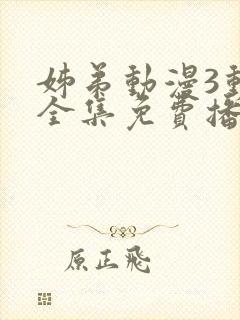 姊弟動漫3動
全集免費播
原正飛